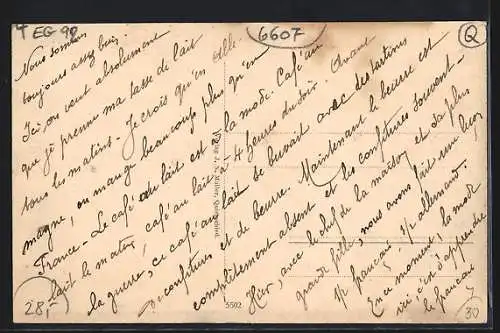 4 EG 92
6607
Q
Nous sommes
toujours assez bien.
Ici on veut absolument
que je prenne ma tasse de lait
tous les matins - Je crois qu'en Alle-
magne, on mange beaucoup plus qu'en
France - Le café au lait est à la mode. Café au
lait le matin, café au lait à 4 heures du soir. Avant
la guerre, ce café au lait se buvait avec des tartines
de confitures et de beurre. Maintenant le beurre est
complètement absent et les confitures souvent -
Hier, avec le chef de la maison et sa plus
grande fille, nous avons fait une leçon
1/2 français 1/2 allemand.
En ce moment, la mode
ici c'est d'apprendre
le français
5502
28,-
30